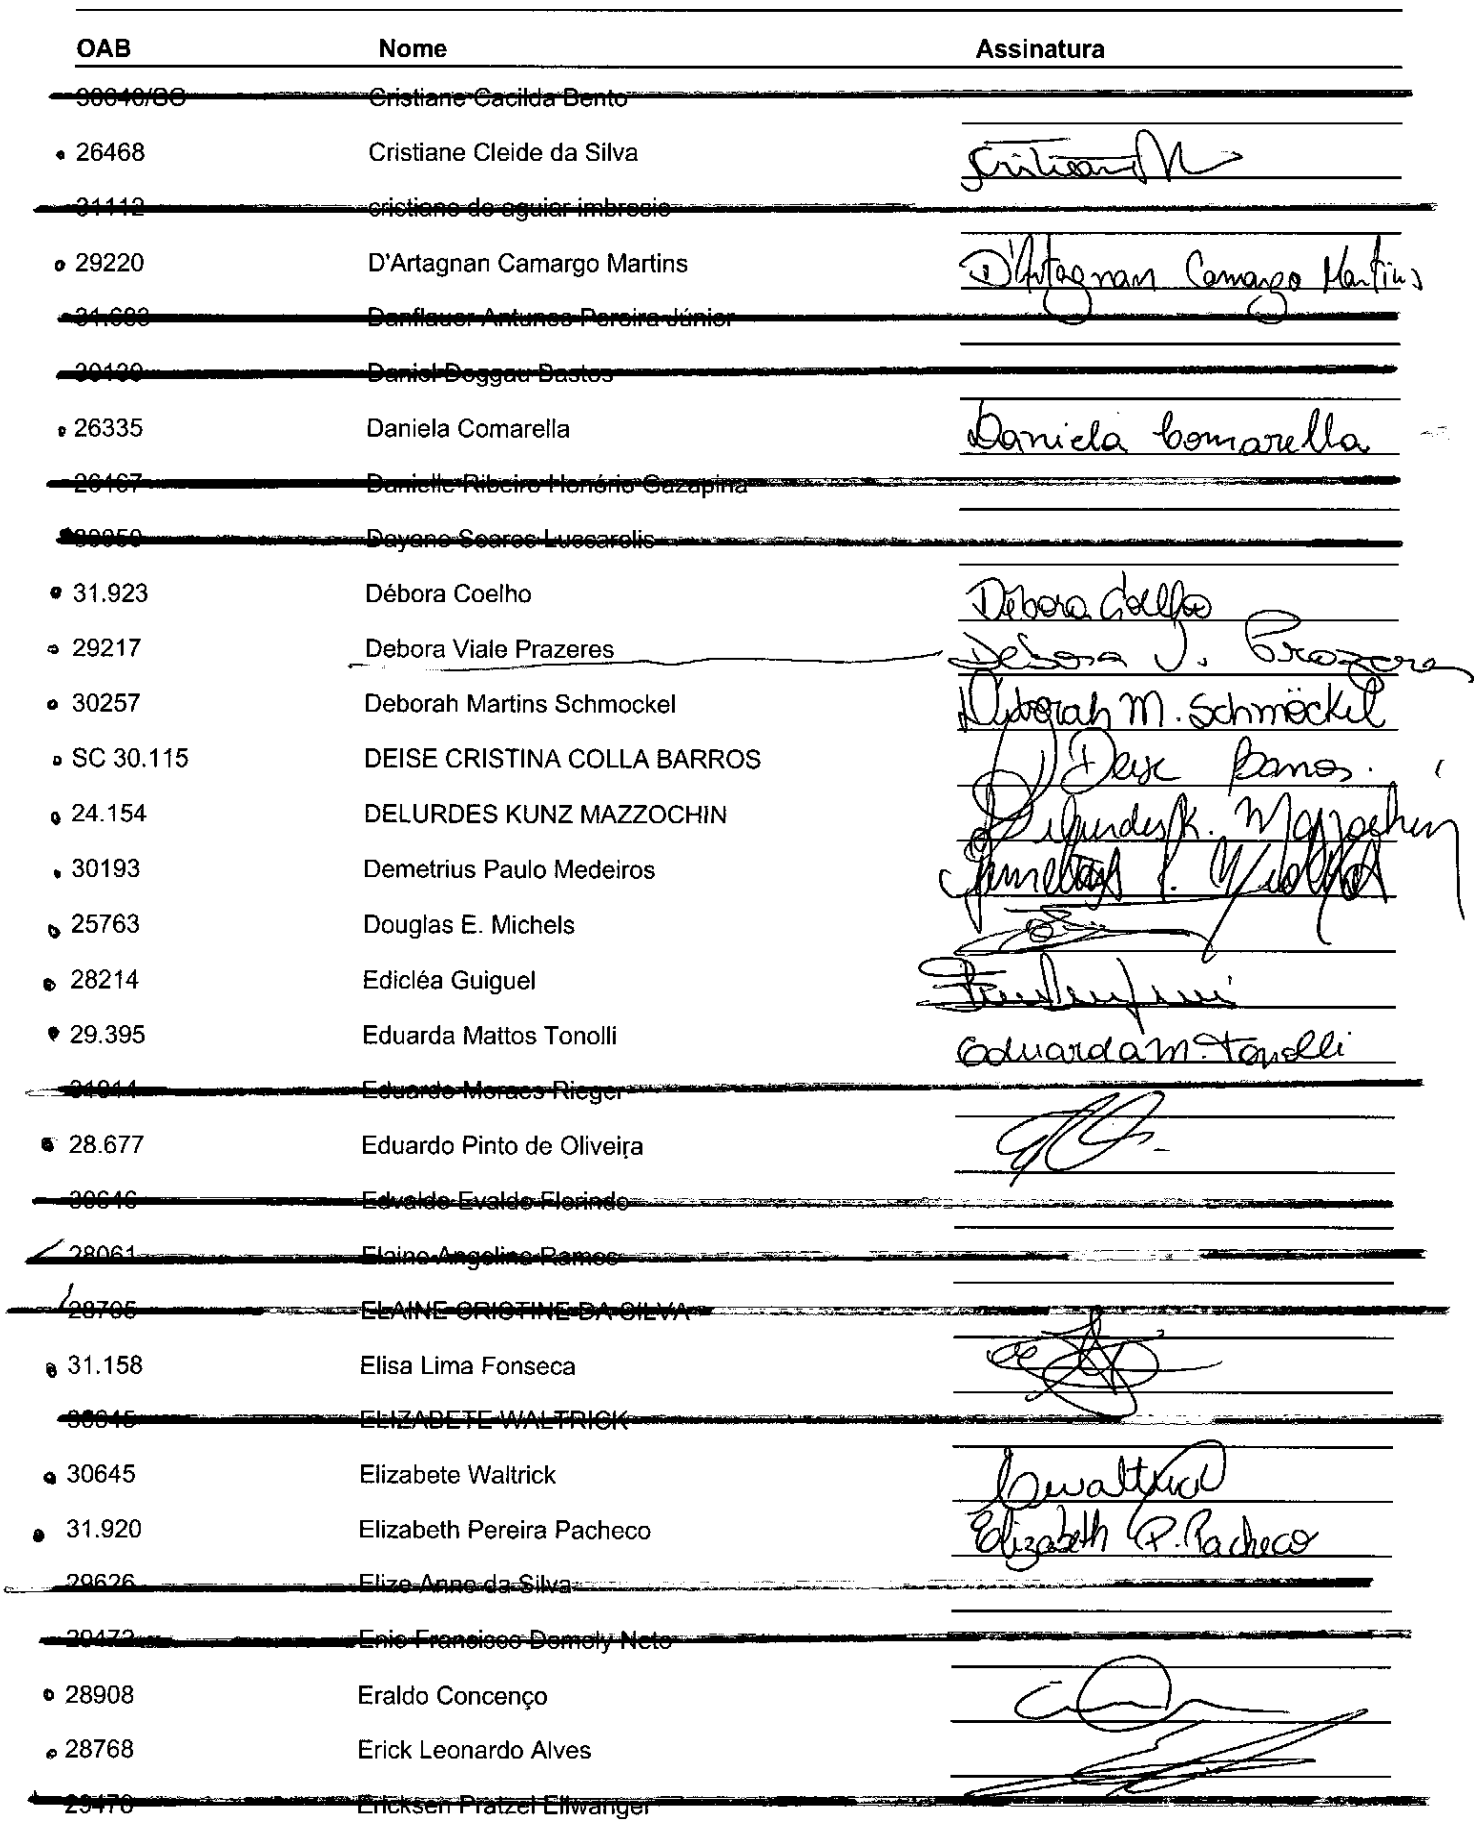 OAB Nome Assinatura
Cristiane Cacilda Bento
26468 Cristiane Cleide da Silva
31112 cristiane de aguiar imbrosio
29220 D'Artagnan Camargo Martins D'Artagnan Camargo Martins
Antunes Pereira Júnior
Daniel Deggau Bastos
26335 Daniela Comarella Daniela Comarella
26167 Danielle Ribeiro Honório Gazapina
Dayane Soares
31.923 Débora Coelho Débora Coelho
29217 Debora Viale Prazeres Debora V. Prazeres
30257 Deborah Martins Schmockel Deborah M. Schmöckel
SC 30.115 DEISE CRISTINA COLLA BARROS Deise Barros.
24.154 DELURDES KUNZ MAZZOCHIN Delurdes K. Mazzochin
30193 Demetrius Paulo Medeiros
25763 Douglas E. Michels
28214 Edicléa Guiguel
29.395 Eduarda Mattos Tonolli Eduarda M. Tonolli
Eduardo Moraes Rieger
28.677 Eduardo Pinto de Oliveira
30646 Edvaldo Evaldo Florindo
28061 Elaine Angelina Ramos
28705 ELAINE CRISTINE DA SILVA
31.158 Elisa Lima Fonseca
ELIZABETE WALTRICK
30645 Elizabete Waltrick
31.920 Elizabeth Pereira Pacheco Elizabeth P. Pacheco
29626 Elize Anne da Silva
29472 Enio Francisco Demoly Neto
28908 Eraldo Concenço
28768 Erick Leonardo Alves
29478 Ericksen Pratzel Ellwanger